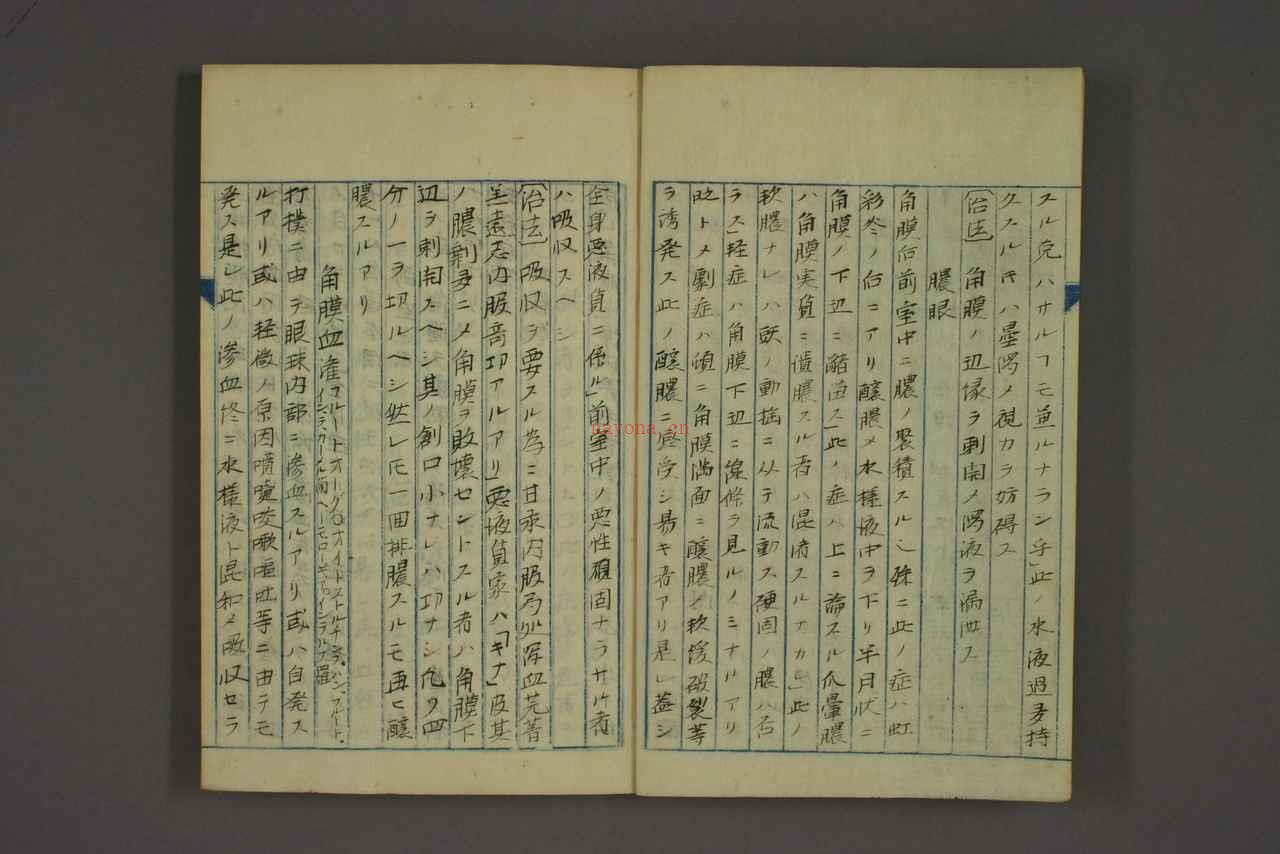 スル克ハサルフモ亜ルナラン乎」此ノ水液過多持
久スル時ハ曇濁メ視カラ妨碍ス
〔治法〕 角膜ノ辺縁ヲ刺開メ濁液ヲ漏泄ス
膿眼
角膜后前室中ニ膿ノ聚積スル也殊ニ此ノ症ハ虹
彩炎ノ后ニアリ醸膿メ水様液中ヲ下リ半月状ニ
角膜ノ下辺ニ瀦畄ス」此ノ症ハ上ニ論スル爪暈膿
ハ角膜実質ニ潰膿スル者ハ混淆スルナカレ」此ノ
軟膿ナレハ頭ノ動揺ニ从テ流動ス硬固ノ膿ハ否
ラス」軽症ハ角膜下辺ニ線條ヲ見ルノミナルアリ
トメ劇症ハ頃ニ角膜満面ニ醸膿メ軟緩破裂等
ヲ誘発ス此ノ醸膿ニ感受シ易キ者アリ是レ蓋シ
全身悪液質ニ係ル」前室中ノ悪性硬固ナラサル者
ハ吸収スヘシ
〔治法〕 吸収ヲ要スル為ニ甘汞内服局処写血芫菁
遠志内服奇功アルアリ」悪液質家ハ「キナ」皮其
ハ膿劇多ニメ角膜ヲ敗壊セントスル者ハ角膜下
辺ヲ刺開スヘシ其ノ創口小ナレハ功ナシ凡ソ四
分ノ一ヲ切ルヘシ然レ𪜈一回排膿スルモ再ヒ醸
膿スルアリ
角膜血 ブルートオーグ
打撲ニ由テ眼球内部ニ滲血スルアリ或ハ自発ス
ルアリ或ハ軽微ノ原因噴嚏咳嗽嘔吐等ニ由テモ
発ス是レ此ノ滲血終ニ水様液ト混和メ吸収セラ
nayona.cn